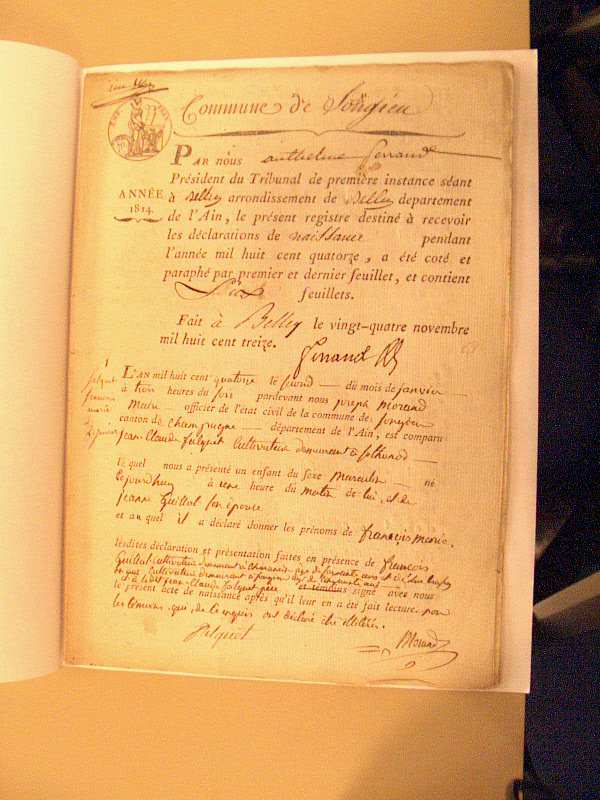 Commune de Songieu
PAR nous anthelme ferrand
Président du Tribunal de première instance séant
ANNÉE
1814.
à Belley arrondissement de Belley département
de l'Ain, le présent registre destiné à recevoir
les déclarations de naissance pendant
l'année mil huit cent quatorze, a été coté et
paraphé par premier et dernier feuillet, et contient
feuillets.
Fait à Belley le vingt-quatre novembre
mil huit cent treize.
1
falquet
françois
marie
L'AN mil huit cent quatorze le second du mois de janvier
à trois heures du soir pardevant nous joseph Morand
Maire officier de l'état civil de la commune de Songieu
canton de Champagne département de l'Ain, est comparu
jean Claude falquet Cultivateur demeurant à
lequel nous a présenté un enfant du sexe Masculin né
cejourdhuy à une heure du matin de lui, et de
jeanne Guillot son épouse
et auquel il a déclaré donner les prénoms de françois marie.
lesdites déclaration et présentation faites en présence de françois
Guillot cultivateur demeurant à agé de soixante ans et de
cultivateur demeurant à songieu agé de cinquante ans
et a ledit jean Claude falquet père et témoins signé avec nous
le présent acte de naissance après qu'il leur en a été fait lecture non
les témoins qui, de ce requis ont déclaré être illitérés.
falquet
Morand